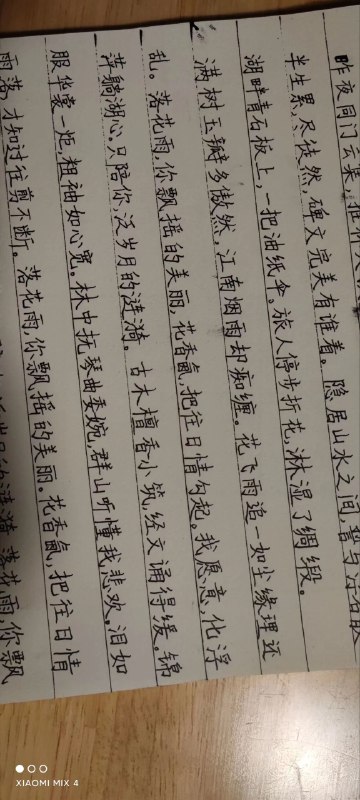 昨夜同门云集,推杯又
半生累,尽徒然,碑文完美有谁看。隐居山水之间,誓与浮名散
湖畔青石板上,一把油纸伞。旅人停步折花,淋湿了绸缎。
满树玉瓣多傲然,江南烟雨却痴缠。花飞雨追一如尘缘理还
乱。落花雨,你飘摇的美丽,花香氤,把往日情勾起。我愿意,化浮
萍躺湖心,只陪你泛岁月的涟漪。古木檀香小筑,经文诵得缓。锦
服华裳一炬,粗袖如心宽。林中抚琴曲委婉,群山听懂我悲欢。泪如
雨落,才知过往剪不断。落花雨,你飘摇的美丽。花香氤,把往日情
岁月的涟漪,落花雨,你飘
XIAOMI MIX 4